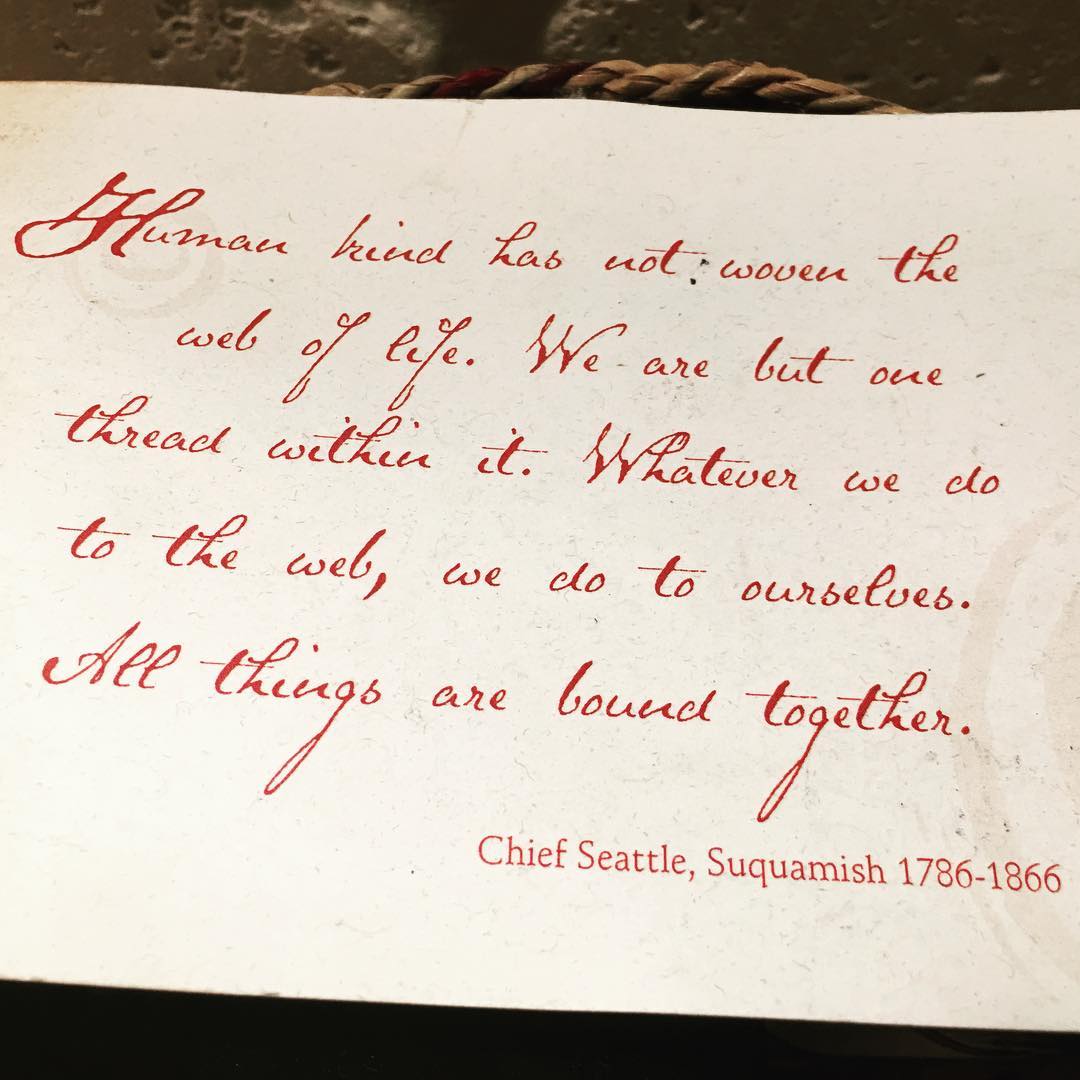 Human kind has not woven the
web of life. We are but one
thread within it. Whatever we do
to the web, we do to ourselves.
All things are bound together.
Chief Seattle, Suquamish 1786-1866